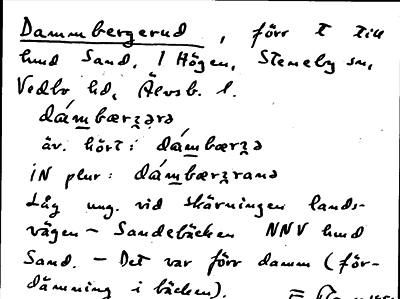 Dammbergerud, förr t till
hmd Sand, 1 Högen, Steneby sn,
Vedbo hd, Älvsb. l.
dámbærʒərə
äv. hört: dámbærʒə
iN plur: dámbærʒrana
Låg ung. vid skärningen lands-
vägen – Sandebäcken NNV hmd
Sand. – Det var förr damm (för-
dämning i bäcken).